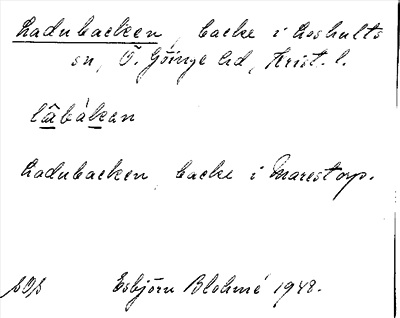 Ladubacken, backe i Loshults
sn, Ö. Göinge hd, Krist. l.
lâbákan
Ladubacken backe i Marestorp.
SOS Esbjörn Blohmé 1948.